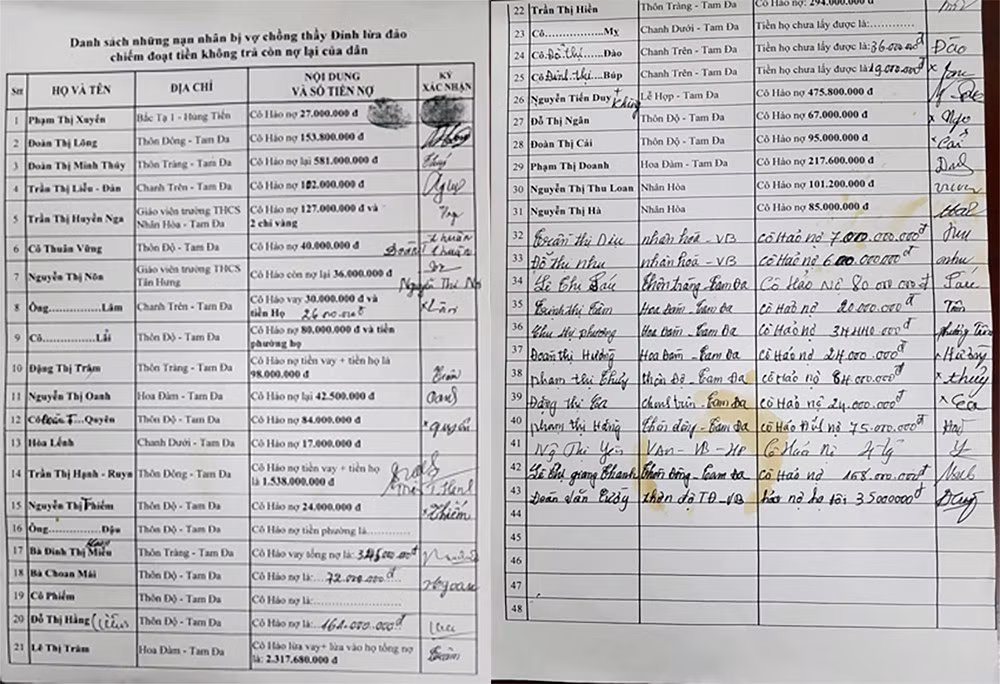 Danh sách những nạn nhân bị vợ chồng thầy Đính lừa đảo
chiếm đoạt tiền không trả còn nợ lại của dân
Stt HỌ VÀ TÊN ĐỊA CHỈ NỘI DUNG VÀ SỐ TIỀN NỢ KÝ XÁC NHẬN
1 Phạm Thị Xuyến Bắc Tạ 1 - Hùng Tiến Cô Hảo nợ 27.000.000 đ
2 Đoàn Thị Lông Thôn Đông - Tam Đa Cô Hảo nợ 153.800.000 đ
3 Đoàn Thị Minh Thúy Thôn Tràng - Tam Đa Cô Hảo nợ lại 581.000.000 đ Thúy
4 Trần Thị Liễu - Đán Chanh Trên - Tam Đa Cô Hảo nợ 102.000.000 đ
5 Trần Thị Huyền Nga Giáo viên trường THCS Cô Hảo nợ 127.000.000 đ và
Nhân Hòa - Tam Đa 2 chỉ vàng Nga
6 Cô Thuân Vững Thôn Độ - Tam Đa Cô Hảo nợ 40.000.000 đ
7 Nguyễn Thị Nôn Giáo viên trường THCS Cô Hảo còn nợ lại 36.000.000 đ
Tân Hưng
8 Ông................Lâm Chanh Trên - Tam Đa Cô Hảo vay 30.000.000 đ và
tiền Họ 26.000.000đ
9 Cô................Lãi Thôn Độ - Tam Đa Cô Hảo nợ 80.000.000 đ và tiền
phường họ
10 Đặng Thị Trâm Thôn Tràng - Tam Đa Cô Hảo nợ tiền vay + tiền họ là
98.000.000 đ
11 Nguyễn Thị Oanh Hoa Đàm - Tam Đa Cô Hảo nợ lại 42.500.000 đ Oanh
12 Cô ...Quyên Thôn Độ - Tam Đa Cô Hảo nợ 84.000.000 đ x quyên
13 Hòa Lềnh Chanh Dưới - Tam Đa Cô Hảo nợ 17.000.000 đ
14 Trần Thị Hạnh - Ruyn Thôn Đông - Tam Đa Cô Hảo nợ tiền vay + tiền họ
là 1.538.000.000 đ
15 Nguyễn Thị Thiềm Thôn Độ - Tam Đa Cô Hảo nợ 24.000.000 đ x thiềm
16 Ông................Đậu Thôn Độ - Tam Đa Cô Hảo nợ tiền phường là.......
17 Bà Đinh Thị Miều Thôn Tràng - Tam Đa Cô Hảo vay tổng nợ là:
18 Bà Choan Mái Thôn Độ - Tam Đa Cô Hảo nợ là:....72.000.000đ
19 Cô Phiếm Thôn Độ - Tam Đa Cô Hảo nợ là:...................
20 Đỗ Thị Hằng Thôn Độ - Tam Đa Cô Hảo nợ là:
21 Lê Thị Trâm Hoa Đàm - Tam Đa Cô Hảo lừa vay+ lừa vào họ tổng nợ
là: 2.317.680.000 đ
22 Trần Thị Hiền Thôn Tràng - Tam Đa Cô Hảo nợ: 294.000.000 đ
23 Cô................Mỵ Chanh Dưới - Tam Đa Tiền họ chưa lấy được là:............
24 Cô Đỗ thị....Đào Chanh Trên - Tam Đa Tiền họ chưa lấy được là: 36.000.000đ Đào
25 Cô Đinh thị...Búp Chanh Trên - Tam Đa Tiền họ chưa lấy được là 19.000.000đ x
26 Nguyễn Tiến Duy Lễ Hợp - Tam Đa Cô Hảo nợ 475.800.000 đ
27 Đỗ Thị Ngân Thôn Độ - Tam Đa Cô Hảo nợ 67.000.000 đ
28 Đoàn Thị Cải Thôn Độ - Tam Đa Cô Hảo nợ 95.000.000 đ x Cải
29 Phạm Thị Doanh Hoa Đàm - Tam Đa Cô Hảo nợ 217.600.000 đ
30 Nguyễn Thị Thu Loan Nhân Hòa Cô Hảo nợ 101.200.000 đ
31 Nguyễn Thị Hà Nhân Hòa Cô Hảo nợ 85.000.000 đ
32 nhân hoà - VB cô Hảo nợ
33 Đỗ thị như nhân hoà - VB cô Hảo nợ như
34 Lê Thị Sáu Thôn tràng - Tam Đa Cô Hảo Nợ 80 000 000đ Sáu
35 Hoa Đàm - Tam Đa cô Hảo nợ 20.000.000đ
36 Chu thị phương Hoa Đàm - Tam Đa cô Hảo nợ
37 Đoàn thị Hường Hoa Đàm - Tam Đa cô Hảo nợ 24.000.000đ x Hường
38 phạm thị Thủy thôn Độ - Tam Đa cô Hảo nợ 84.000.000đ x thủy
39 Đặng thị - Tam Đa cô Hảo nợ 24.000.000đ
40 phạm thị Hằng Thôn đông - Tam Đa cô Hảo nợ 75.000.000đ
41 Ngô Thị Yến - VB - HP Cô Hảo nợ 4 tỷ Y
42 Lê Thị giang Thanh Thôn Đông - Tam Đa cô Hảo nợ 168.000.000đ
43 Đoàn Văn thôn độ TĐ - VB hảo nợ họ tôi 35000000đ
44
45
46
47
48